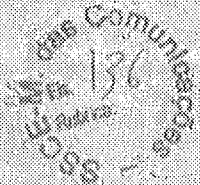 das Comunicações
136
Fls.
Rubrica
SSCE